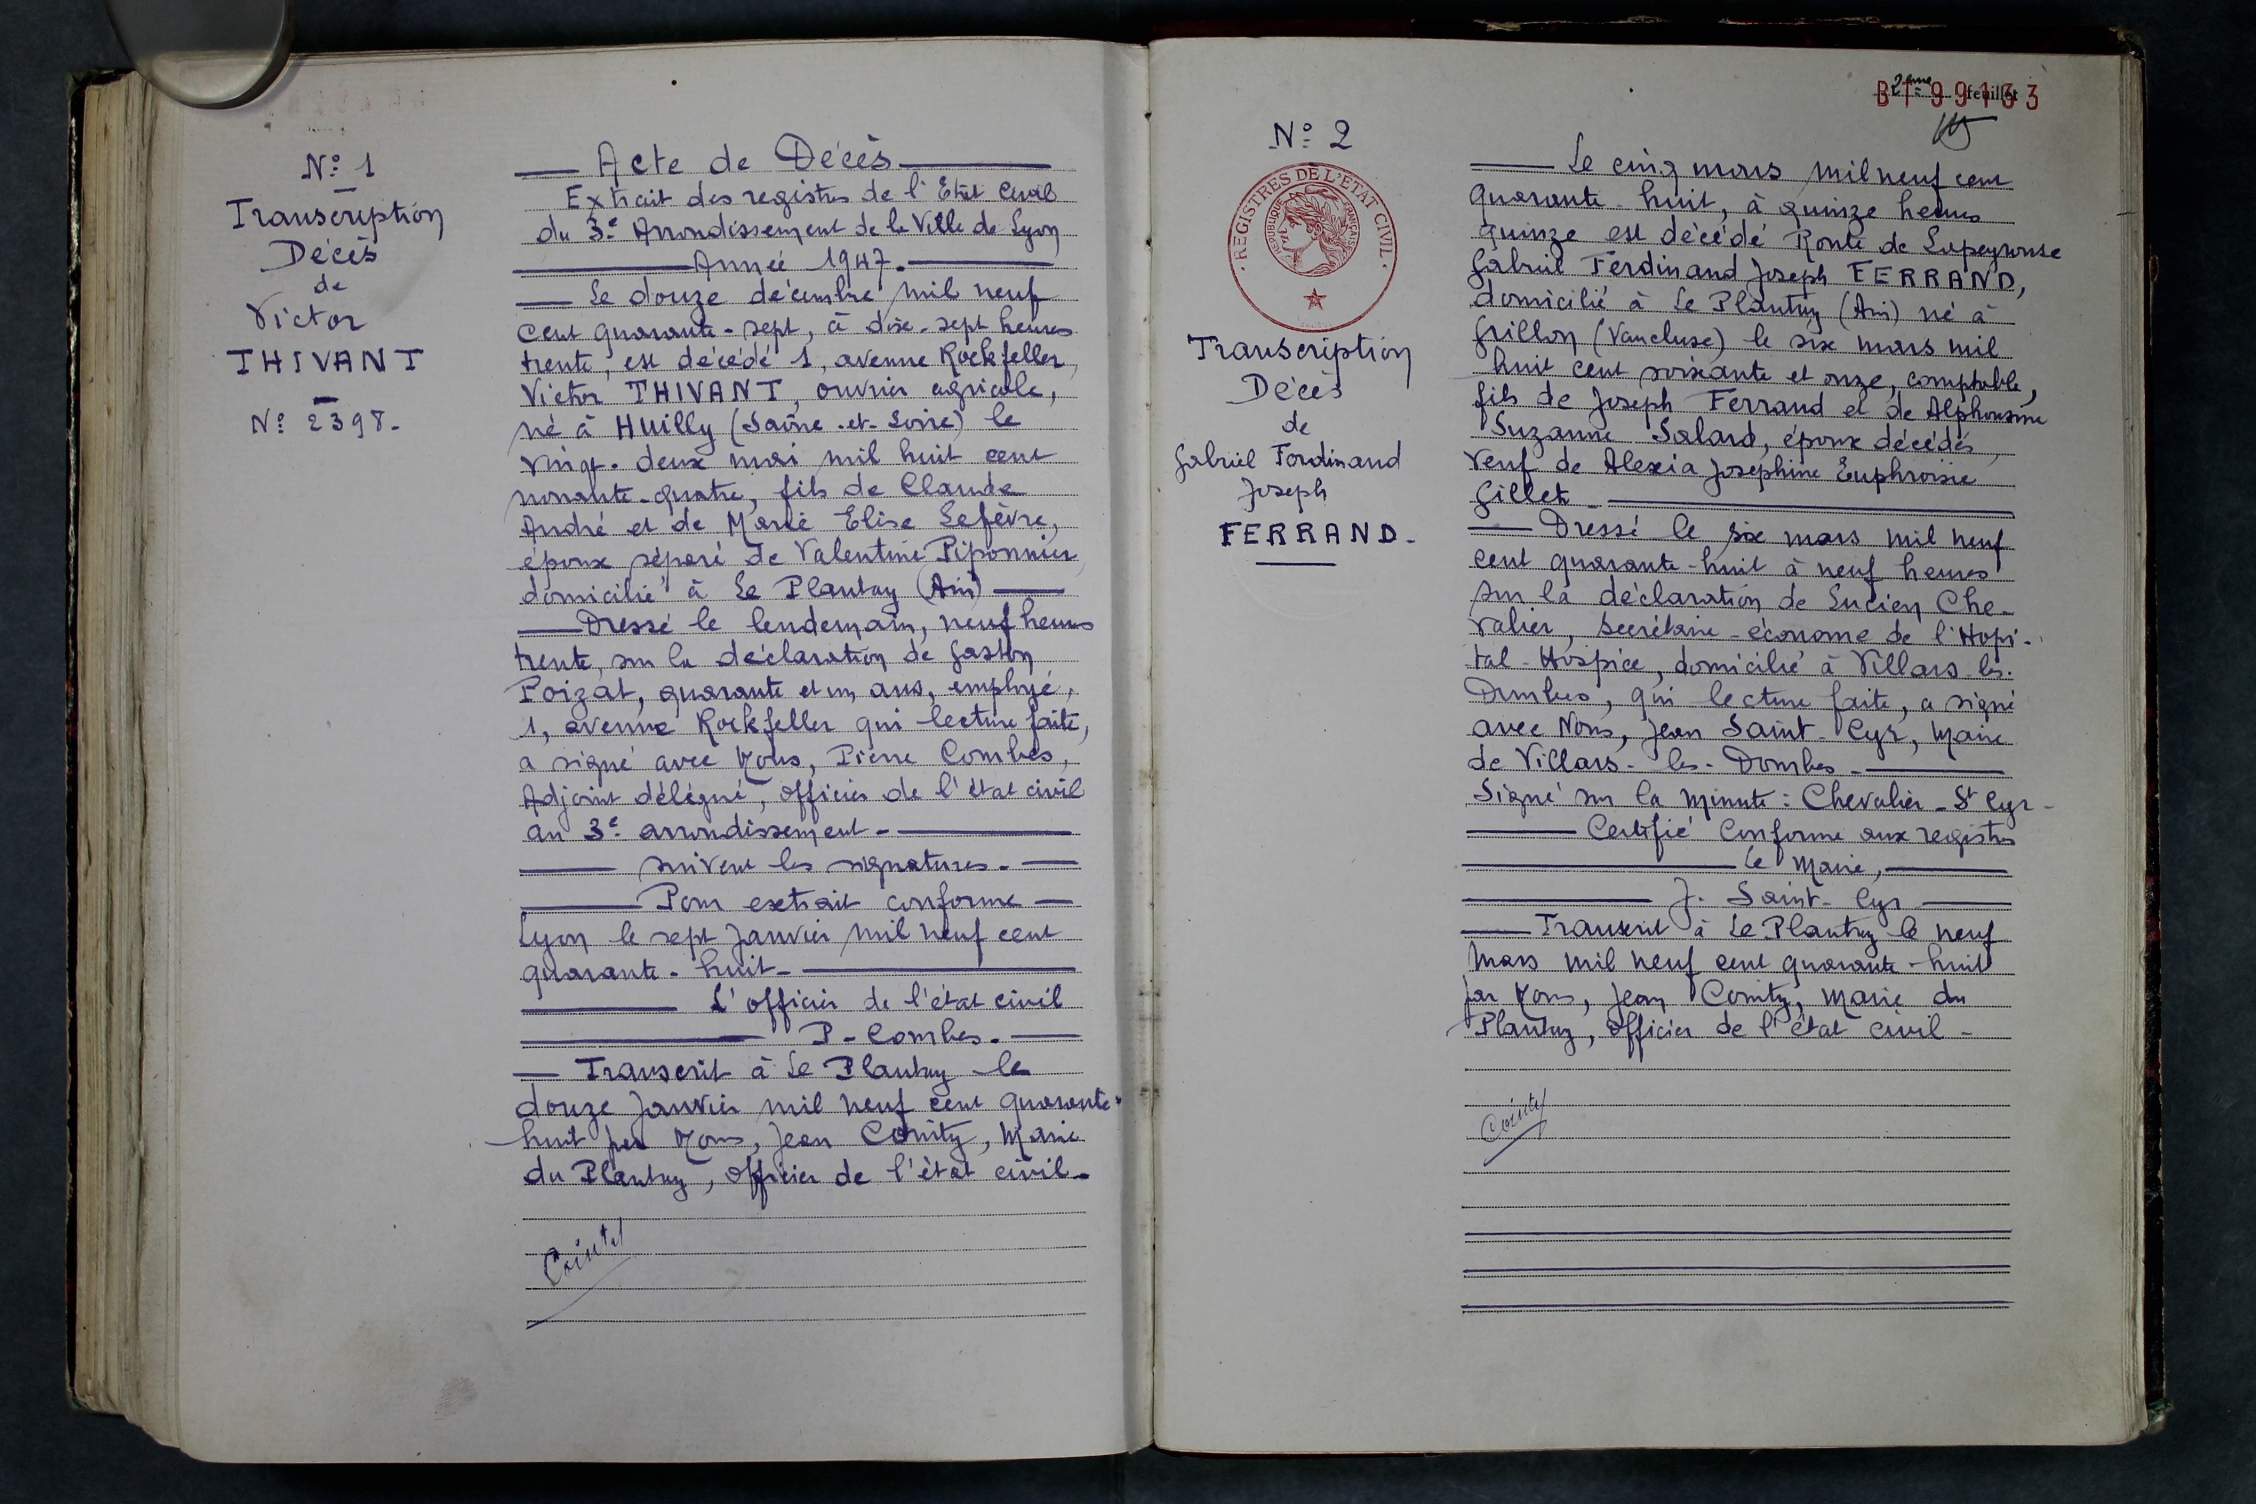 N° 1
Transcription
Décès
de
Victor
THIVANT
N° 2398.
Acte de Décès
Extrait des registres de l'Etat Civil
du 3e Arrondissement de la Ville de Lyon
Année 1947.
Le douze décembre mil neuf
cent quarante-sept, à dix-sept heures
trente, est décédé 1, avenue Rockfeller,
Victor THIVANT, ouvrier agricole,
né à Huilly (Saône-et-Loire) le
vingt-deux mai mil huit cent
nonante-quatre, fils de Claude
André et de Marie Elise Lefèvre,
époux séparé de Valentine Piponnier
domicilié à Le Plantay (Ain)
Dressé le lendemain, neuf heures
trente, sur la déclaration de Gaston
Poizat, quarante et un ans, employé,
1, avenue Rockfeller qui lecture faite,
a signé avec Nous, Pierre Combes,
Adjoint délégué, officier de l'état civil
au 3e arrondissement-
suivent les signatures.
Pour extrait conforme
Lyon le sept Janvier mil neuf cent
quarante-huit-
L'officier de l'état civil
P-Combes.
Transcrit à Le Plantay le
douze Janvier mil neuf cent quarante-
huit par Nous, Jean Cointy, Maire
du Plantay, officier de l'état civil-
Cointy
2ème feuillet
BT 99133
N° 2
REGISTRES DE L'ETAT CIVIL
REPUBLIQUE FRANÇAISE
Transcription
Décès
de
Gabriel Ferdinand
Joseph
FERRAND.
Le cinq mars mil neuf cent
quarante-huit, à quinze heures
quinze est décédé Route de Lapeyrouse
Gabriel Ferdinand Joseph FERRAND,
domicilié à Le Plantay (Ain) né à
Grillon (Vaucluse) le six mars mil
huit cent soixante et onze, comptable,
fils de Joseph Ferrand et de Alphonsine
Suzanne Salard, époux décédés,
Veuf de Alexia Josephine Euphroisie
Gillet
Dressé le six mars mil neuf
cent quarante-huit à neuf heures
sur la déclaration de Lucien Che-
valier, secrétaire-économe de l'Hopi-
tal-Hospice, domicilié à Villars-les-
Dombes, qui lecture faite, a signé
avec Nous, Jean Saint-Cyr, Maire
de Villars-les-Dombes-
Signé sur la minute: Chevalier-St Cyr-
Certifié Conforme aux registres
Le Maire,
J. Saint-Cyr
Transcrit à Le Plantay le neuf
Mars mil neuf cent quarante-huit
par Nous, Jean Cointy, Maire du
Plantay, officier de l'état civil-
Cointy